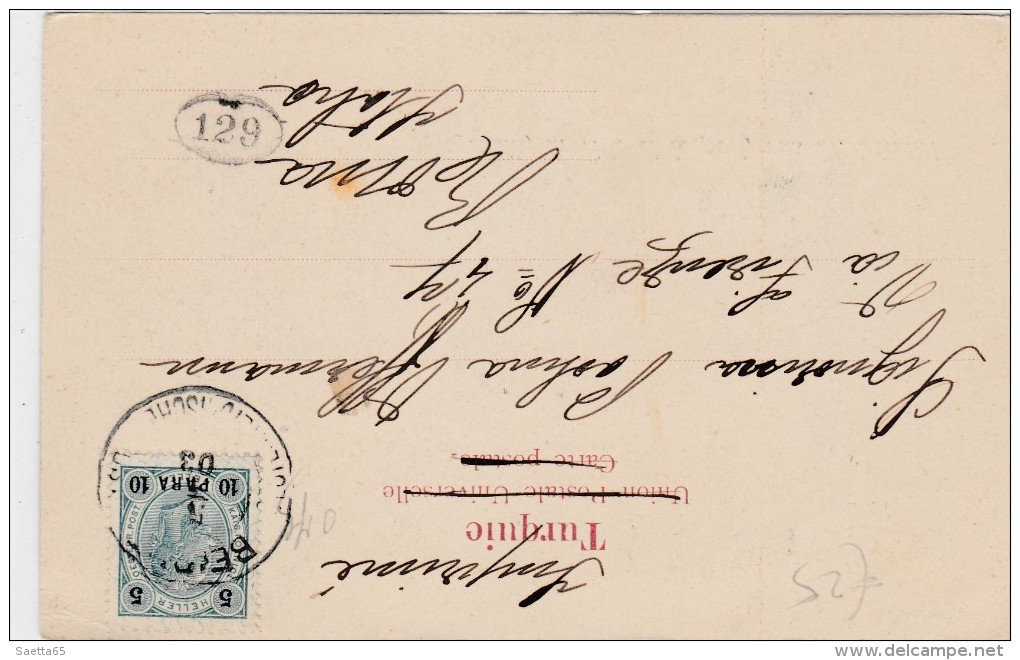 Imprimé
Turquie
Union Postale Universelle
Carte postale
Signorina
Via Firenze No 47
Roma
Italia
129
5 5
HELLER
10 PARA 10
03
£25
Saetta65
delcampe.net